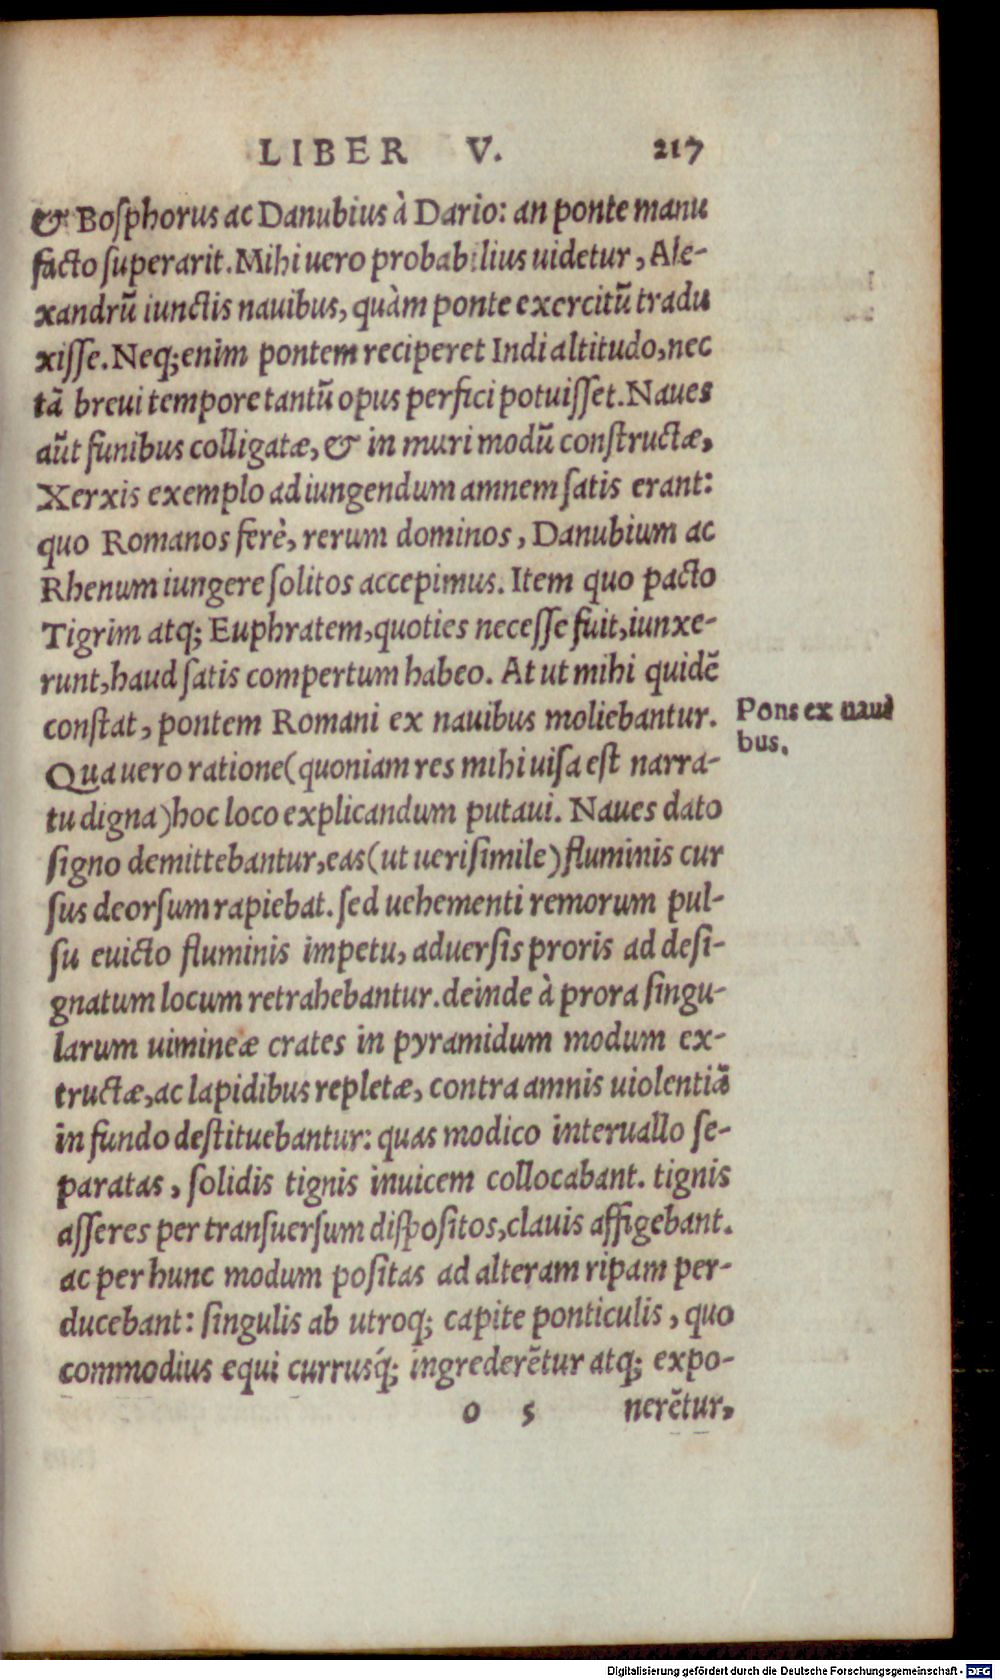 LIBER V. 217
& Bosphorus ac Danubius à Dario: an ponte manu
facto superarit. Mihi uero probabilius uidetur, Ale-
xandrũ iunctis nauibus, quàm ponte exercitũ tradu
xisse. Neq; enim pontem reciperet Indi altitudo, nec
tã breui tempore tantũ opus perfici potuisset. Naues
aũt funibus colligatæ, & in muri modũ constructæ,
Xerxis exemplo ad iungendum amnem satis erant:
quo Romanos ferè, rerum dominos, Danubium ac
Rhenum iungere solitos accepimus. Item quo pacto
Tigrim atq; Euphratem, quoties necesse fuit, iunxe-
runt, haud satis compertum habeo. At ut mihi quidẽ
constat, pontem Romani ex nauibus moliebantur.
Pons ex naui
bus.
Qua uero ratione (quoniam res mihi uisa est narra-
tu digna) hoc loco explicandum putaui. Naues dato
signo demittebantur, eas (ut uerisimile) fluminis cur
sus deorsum rapiebat. sed uehementi remorum pul-
su euicto fluminis impetu, aduersis proris ad desi-
gnatum locum retrahebantur. deinde à prora singu-
larum uimineæ crates in pyramidum modum ex-
tructæ, ac lapidibus repletæ, contra amnis uiolentiã
in fundo destituebantur: quas modico interuallo se-
paratas, solidis tignis inuicem collocabant. tignis
asseres per transuersum dispositos, clauis affigebant.
ac per hunc modum positas ad alteram ripam per-
ducebant: singulis ab utroq; capite ponticulis, quo
commodius equi currusq́; ingrederẽtur atq; expo-
o 5 nerẽtur,
Digitalisierung gefördert durch die Deutsche Forschungsgemeinschaft - DFG